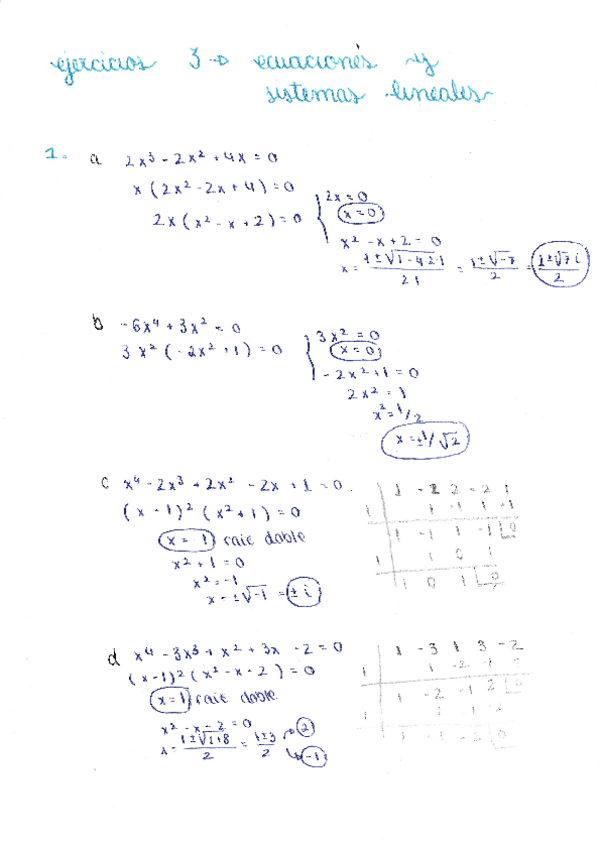 ejercicios 3 → ecuaciones y
sistemas lineales
1. a 2x³ - 2x² + 4x = 0
x (2x² - 2x + 4) = 0
2x (x² - x + 2) = 0
2x = 0
x = 0
x² - x + 2 = 0
x = 1 ± √1 - 4·2·1 / 2·1 = 1 ± √-7 / 2 = 1 ± √7 i / 2
b -6x⁴ + 3x² = 0
3x² (-2x² + 1) = 0
3x² = 0
x = 0
-2x² + 1 = 0
2x² = 1
x² = 1/2
x = ±1/√2
c x⁴ - 2x³ + 2x² - 2x + 1 = 0.
(x - 1)² (x² + 1) = 0
x = 1 raíz doble
x² + 1 = 0
x² = -1
x = ±√-1 = ± i
1 -2 2 -2 1
1 1 -1 1 -1
1 -1 1 -1 0
1 1 0 1
1 0 1 0
d x⁴ - 3x³ + x² + 3x - 2 = 0
(x - 1)² (x² - x - 2) = 0
x = 1 raíz doble
x² - x - 2 = 0
x = 1 ± √1 + 8 / 2 = 1 ± 3 / 2
2
-1
1 -3 1 3 -2
1 1 -2 -1 2
1 -2 -1 2 0
1 1 -1 -2
1 -1 -2 0